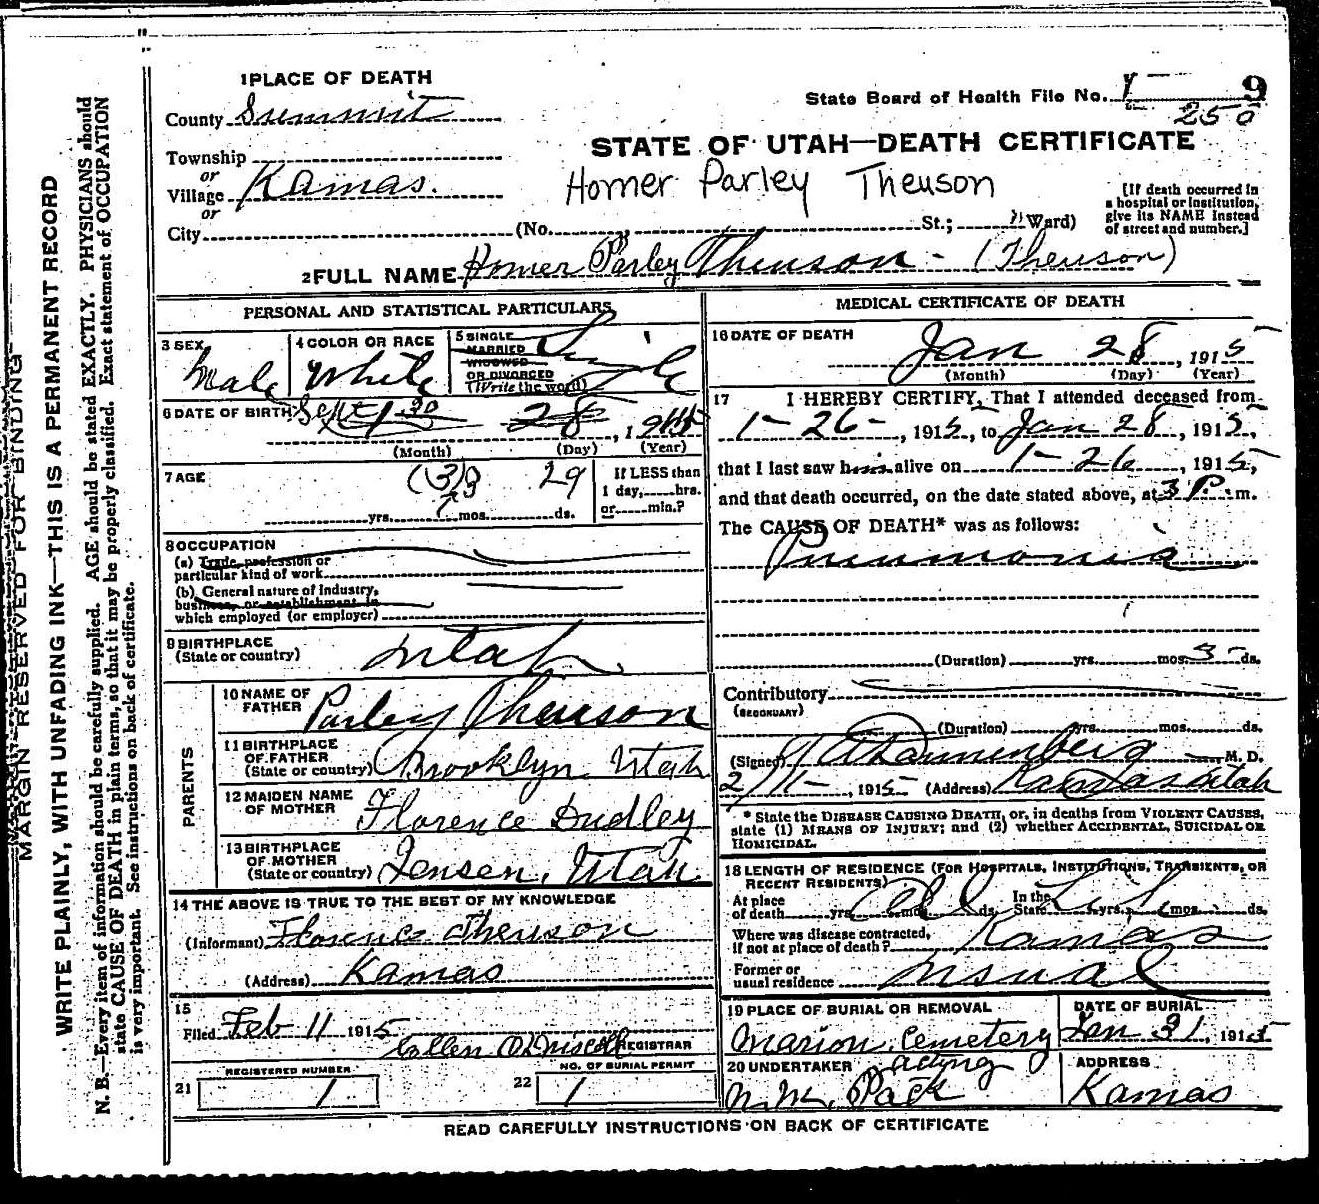 1 PLACE OF DEATH
County Summit
Township
or
Village Kamas.
or
City (No. St.; Ward)
State Board of Health File No. 9
250
STATE OF UTAH—DEATH CERTIFICATE
Homer Parley Theuson
[If death occurred in
a hospital or institution,
give its NAME instead
of street and number.]
2 FULL NAME Homer Parley Theuson - (Theuson)
PERSONAL AND STATISTICAL PARTICULARS
3 SEX
Male
4 COLOR OR RACE
White
5 SINGLE
MARRIED
WIDOWED
OR DIVORCED
(Write the word)
Single
6 DATE OF BIRTH Sept 30 28, 19
(Month) (Day) (Year)
7 AGE (3) 3 29
yrs. mos. ds.
If LESS than
1 day, hrs.
or min.?
8 OCCUPATION
(a) Trade, profession or
particular kind of work
(b) General nature of industry,
business, or establishment in
which employed (or employer)
9 BIRTHPLACE
(State or country) Utah
PARENTS
10 NAME OF
FATHER Parley Theuson
11 BIRTHPLACE
OF FATHER
(State or country) Brooklyn Utah
12 MAIDEN NAME
OF MOTHER Florence Dudley
13 BIRTHPLACE
OF MOTHER
(State or country) Jensen, Utah
14 THE ABOVE IS TRUE TO THE BEST OF MY KNOWLEDGE
(Informant) Florence Theuson
(Address) Kamas
15
Filed Feb 11 1915 REGISTRAR
21 REGISTERED NUMBER
1
22 NO. OF BURIAL PERMIT
1
MEDICAL CERTIFICATE OF DEATH
16 DATE OF DEATH
Jan 28, 1915
(Month) (Day) (Year)
17 I HEREBY CERTIFY, That I attended deceased from
1-26-, 1915, to Jan 28, 1915,
that I last saw him alive on 1-26, 1915,
and that death occurred, on the date stated above, at 3 P. m.
The CAUSE OF DEATH* was as follows:
Pneumonia
(Duration) yrs. mos. 3 ds.
Contributory
(SECONDARY)
(Duration) yrs. mos. ds.
(Signed) Dannenberg M. D.
2/1-, 1915 (Address) Kamas Utah
* State the DISEASE CAUSING DEATH, or, in deaths from VIOLENT CAUSES,
state (1) MEANS OF INJURY; and (2) whether ACCIDENTAL, SUICIDAL OR
HOMICIDAL.
18 LENGTH OF RESIDENCE (FOR HOSPITALS, INSTITUTIONS, TRANSIENTS, OR
RECENT RESIDENTS)
At place
of death yrs. All mos. ds. In the
State Life yrs. mos. ds.
Where was disease contracted,
if not at place of death? Kamas
Former or
usual residence usual
19 PLACE OF BURIAL OR REMOVAL
Marion, Cemetery
DATE OF BURIAL
Jan 31, 1915
20 UNDERTAKER acting
Pack
ADDRESS
Kamas
READ CAREFULLY INSTRUCTIONS ON BACK OF CERTIFICATE
MARGIN RESERVED FOR BINDING
WRITE PLAINLY, WITH UNFADING INK—THIS IS A PERMANENT RECORD
N. B.—Every item of information should be carefully supplied. AGE should be stated EXACTLY. PHYSICIANS should
state CAUSE OF DEATH in plain terms, so that it may be properly classified. Exact statement of OCCUPATION
is very important. See instructions on back of certificate.